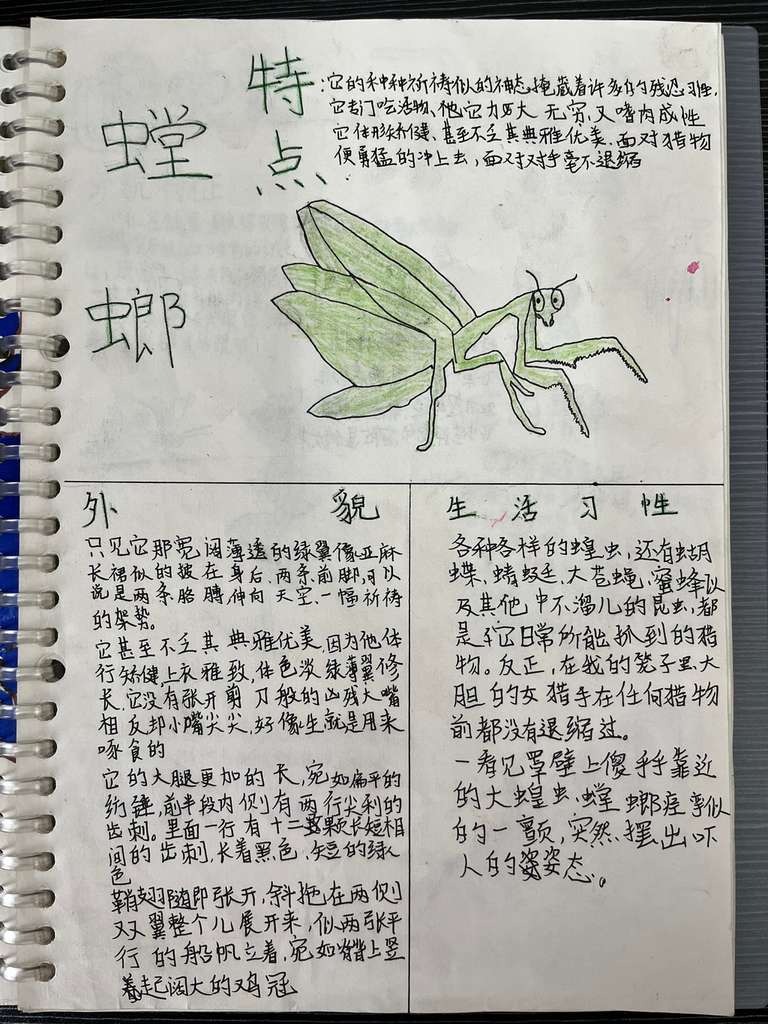 螳
螂
特
点
:它的种种祈祷似的神态,掩藏着许多的残忍习性,
它专门吃活物,他它力历大无穷,又嗜肉成性
它体形矫健,甚至不乏其典雅优美.面对猎物
便勇猛的冲上去,面对对手毫不退缩
外貌
只见它那宽阔薄透的绿翼像亚麻
长裙似的披在身后,两条前脚,可以
说是两条胳膊,伸向天空.一幅祈祷
的架势。
它甚至不乏其典雅优美,因为他体
行矫健上衣雅致,体色淡绿薄翼修
长,它没有张开剪刀般的凶残大嘴
相反却小嘴尖尖,好像生就是用来
啄食的
它的大腿更加的长,宛如扁平的
纺锤,前半段内侧有两行尖利的
齿刺。里面一行有十二颗长短相
间的齿刺,长着黑色、短的绿
色
鞘翅随即张开,斜拖在两侧
双翼整个儿展开来,似两张平
行的船帆立着,宛如脊背上竖
着起阔大的鸡冠
生活习性
各种各样的蝗虫,还有蝴
蝶、蜻蜓、大苍蝇,蜜蜂以
及其他中不溜儿的昆虫,都
是它日常所能抓到的猎
物。反正,在我的笼子里,大
胆的女猎手在任何猎物
前都没有退缩过。
一看见罩壁上傻乎乎靠近
的大蝗虫,螳螂痉挛似
的一颤,突然摆出吓
人的姿态。